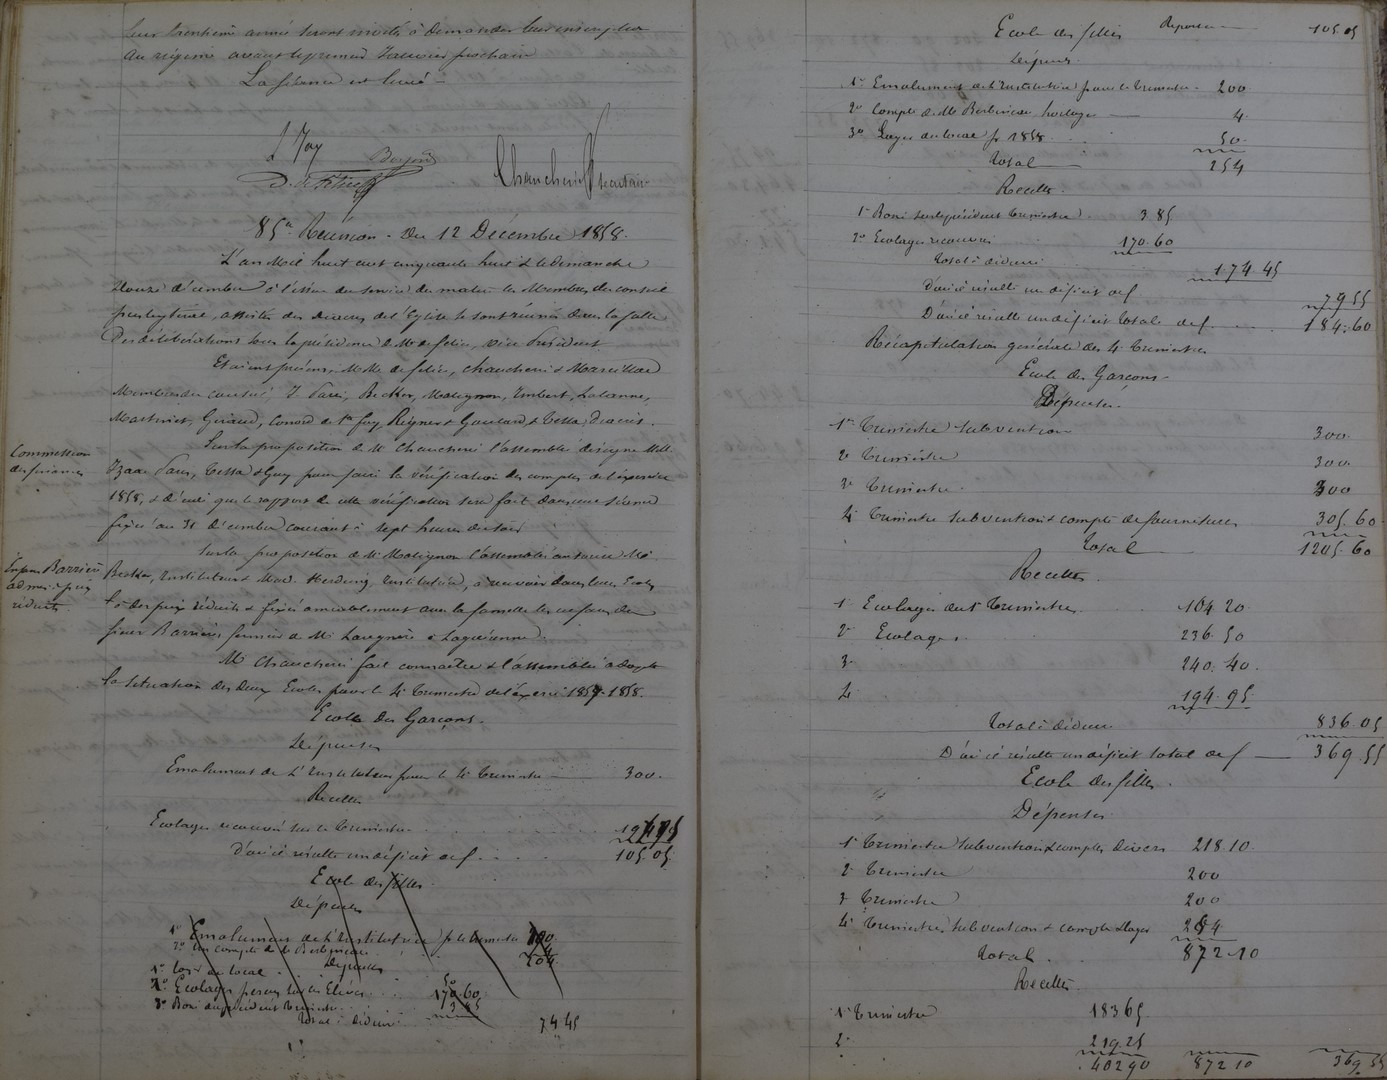 leur trentième année seront invités à demander leur inscription
au régime avant le premier Janvier prochain
La séance est levée
J Jay
Chaucherie Secrétaire
85e Réunion - Du 12 Décembre 1858.
L'an Mil huit cent cinquante huit & le dimanche
douze décembre à l'issue du service du matin les Membres du conseil
presbytéral, assistés des Diacres de l'Eglise se sont réunis dans la salle
Des délibérations sous la présidence de Mr de félice, vice Président
Etaient présents, MM. de félice, Chaucherie & Marcillac
Membres du conseil, I Paris, Becker, Matignon, Imbert, Lalanne,
Giraud, Conord de Ste foy, & Tessa, Diacres.
Commission
des finances
Sur la proposition de Mr Chaucherie l'assemblée désigne MM.
Izaac Paris, Tessa & Guy pour faire la vérification des comptes de l'exercice
1858, & décide que le rapport de cette vérification sera fait dans une séance
fixée au 31 décembre courant à sept heures du soir
Enfans Barrière
admis à prix
réduits.
Sur la proposition de Mr Matignon l'assemblée autorise Mr.
Becker, Instituteur & Mad. Herding, Institutrice, à recevoir dans leurs Ecoles
& à des prix réduits & fixés amiablement avec la famille les enfans du
sieur Barrière, fermier de Mr Lavignère à
Mr Chaucherie fait connaître & l'assemblée adopte
la situation des deux Ecoles pour le 4e Trimestre de l'exercice 1857-1858.
Ecole des Garçons.
Dépenses
Emolument de l'Instituteur pour le 4e Trimestre 300.
Recettes
Ecolages recouvrés sur le Trimestre 194.95
D'où il résulte un déficit de f 105.05
Ecole des filles.
Dépenses
1o Emolument de l'Institutrice pr le trimestre 200
2o Un compte de Mr Berbineau 4
204
Dépenses
1o Loyer du local 50
2o Ecolages perçus sur les Elèves 170.60
3o Boni du précédent Trimestre 3.85
Total à déduire 74 45
Ecole des filles Report 105.05
Dépenses
1o Emolument de l'Institutrice pour le trimestre 200
2o Compte de Mr Berbineau horloger 4.
3o Loyer du local pr 1858 50.
Total 254
Recettes
1o Boni sur le précédent trimestre 3.85
2o Ecolages recouvrés 170.60
Total à déduire 174.45
D'où il résulte un déficit de f 79 55
D'où il résulte un déficit total de f. 184.60
Récapitulation générale des 4 Trimestres
Ecole des Garçons
Dépenses.
1er Trimestre subvention 300.
2e Trimestre 300.
3e Trimestre. 300
4e Trimestre subvention & compte de fournitures 305.60
Total 1205.60
Recettes.
1 Ecolages du 1er Trimestre 164 20
2e Ecolages 236.50
3e 240.40
4 194.95
Total à déduire 836.05
D'où il résulte un déficit total de f 369.55
Ecole des filles
Dépenses
1er Trimestre subvention & comptes divers 218.10
2e Trimestre 200
3e Trimestre 200
4e Trimestre subvention & compte & loyer 254
Total 872.10
Recettes
1er Trimestre 183 65
2e 219.25
402 90 872 10 369.55